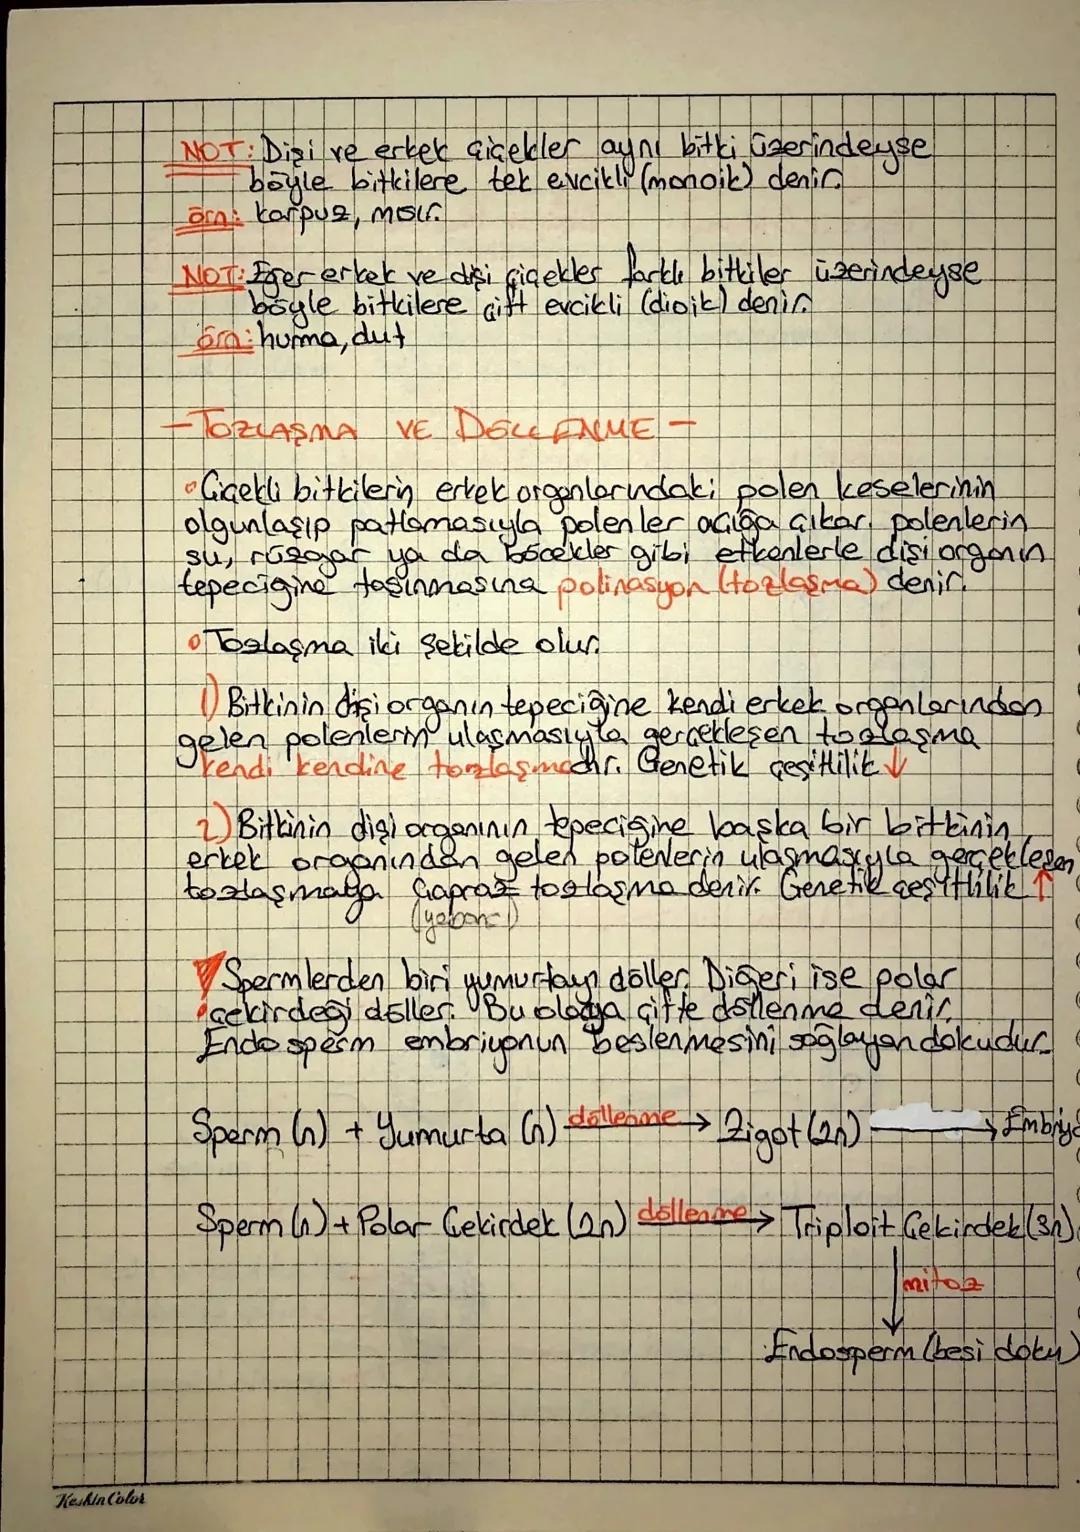 NOT: Dişi ve erkek çiçekler aynı bitki üzerindeyse
böyle bitkilere tek evcikli (monoik) denir.
örn: karpuz, mısır.
NOT: Eğer erkek ve dişi çiçekler farklı bitkiler üzerindeyse
böyle bitkilere çift evcikli (dioik) denir.
örn: hurma, dut
-TOZLAŞMA VE DÖLLENME-
Çiçekli bitkilerin erkek organlarındaki polen keselerinin
olgunlaşıp patlamasıyla polenler açığa çıkar. polenlerin
su, rüzgar ya da böcekler gibi etkenlerle dişi organın
tepeciğine taşınmasına polinasyon (tozlaşma) denir.
Tozlaşma iki şekilde olur.
1) Bitkinin dişi organın tepeciğine kendi erkek organlarından
gelen polenlerin ulaşmasıyla gerçekleşen tozlaşma
kendi kendine tozlaşmadır. Genetik çeşitlilik ↓
2) Bitkinin dişi organının tepeciğine başka bir bitkinin
erkek organından gelen polenlerin ulaşmasıyla gerçekleşen
tozlaşmaya çapraz tozlaşma denir. Genetik çeşitlilik ↑
(yabancı)
Spermlerden biri yumurtayı döller. Diğeri ise polar
çekirdeği döller. Bu olaya çifte döllenme denir.
Endosperm embriyonun beslenmesini sağlayan dokudur.
Sperm (n) + Yumurta (n) döllenme → Zigot (2n) → Embriyo
Sperm (n) + Polar Çekirdek (2n) döllenme → Triploit Çekirdek (3n)
mitoz
Endosperm (besi doku)
Keskin Color